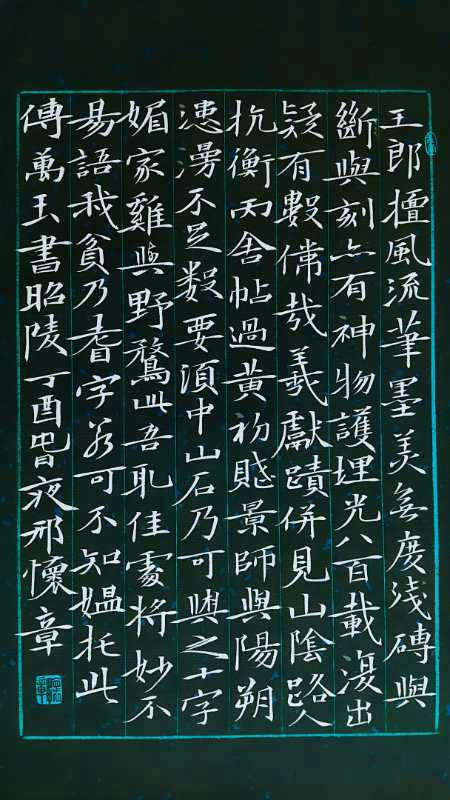 王郎擅風流筆墨美無度殘磚與
斷與刻亦有神物護埋光八百載復出
疑有數儻哉羲獻蹟併見山陰路人
抗衡丙舍帖過黃初賤景師與陽朔
漶漫不足數要須中山石乃可與之十字
媚家雞與野鶩此吾耻佳處將妙不
易語我貧乃耆字若可不知媪托此
傳萬玉書昭陵丁酉旹夜邢懷章